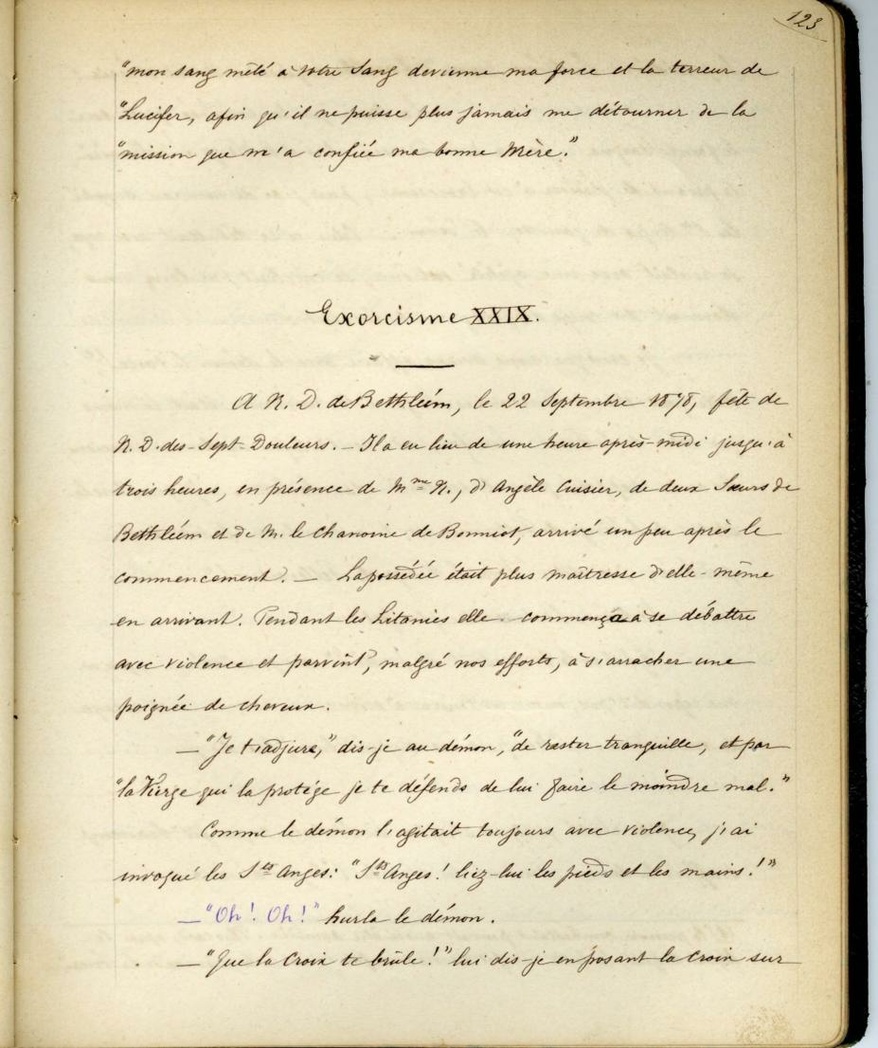 123
"mon sang mêlé à votre Sang devienne ma force et la terreur de
"Lucifer, afin qu'il ne puisse plus jamais me détourner de la
"mission que m'a confiée ma bonne Mère."
Exorcisme XXIX.
A N. D. de Bethléem, le 22 Septembre 1878, fête de
N. D. des-Sept-Douleurs. — Il a eu lieu de une heure après-midi jusqu'à
trois heures, en présence de Mme N., d'Angèle Cuisier, de deux Sœurs de
Bethléem et de M. le Chanoine de Bonniot, arrivé un peu après le
commencement. — La possédée était plus maîtresse d'elle-même
en arrivant. Pendant les Litanies elle commença à se débattre
avec violence et parvint, malgré nos efforts, à s'arracher une
poignée de cheveux.
— "Je t'adjure," dis-je au démon, "de rester tranquille, et par
"la Vierge qui la protége je te défends de lui faire le moindre mal."
Comme le démon l'agitait toujours avec violence, j'ai
invoqué les Sts Anges: "Sts Anges! liez-lui les pieds et les mains!"
— "Oh! Oh!" hurla le démon.
— "Que la Croix te brûle!" lui dis-je en posant la Croix sur